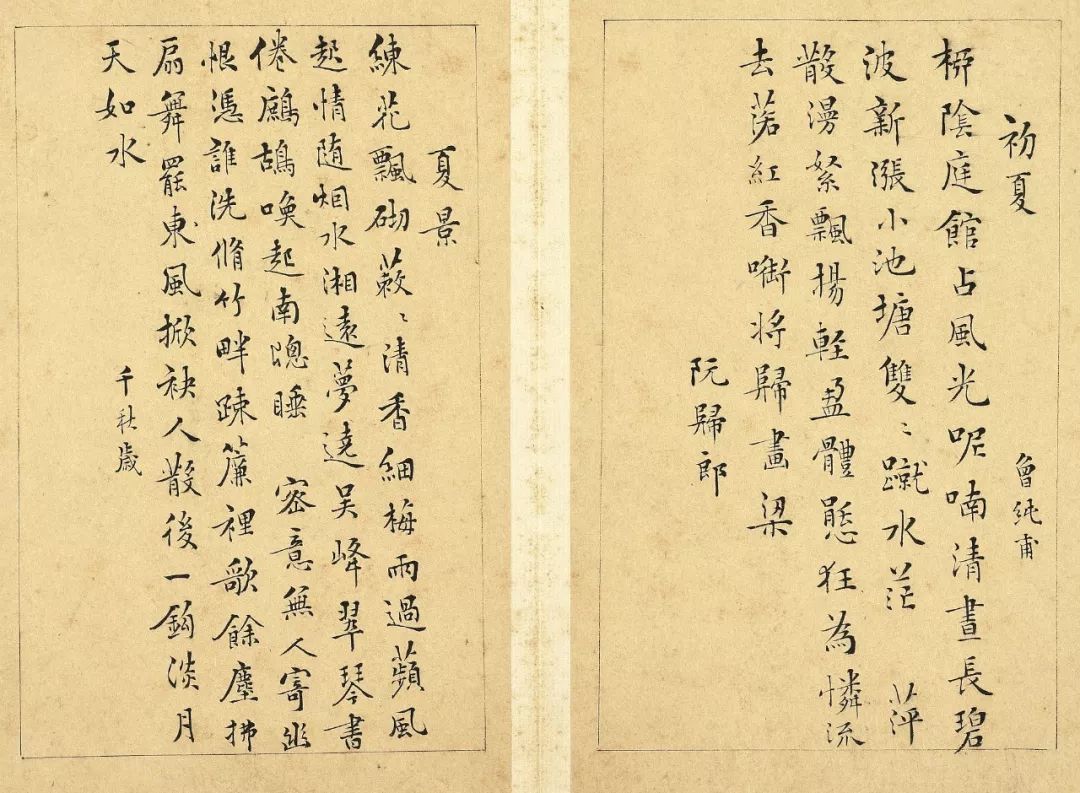 初夏 曾純甫
桺陰庭館占風光呢喃清晝長碧
波新漲小池塘雙〻蹴水茫 萍
散漫絮飄揚輕盈體態狂為憐流
去落紅香啣將歸畫梁
阮歸郎
夏景
練花飄砌蔌〻清香細梅雨過蘋風
起情随烟水湘遠夢遶吴峰翠琴書
倦鷓鴣喚起南牕睡 密意無人寄幽
恨憑誰洗脩竹畔疎簾裡歌餘塵拂
扇舞罷東風掀袂人散後一鈎淡月
天如水
千秋歲